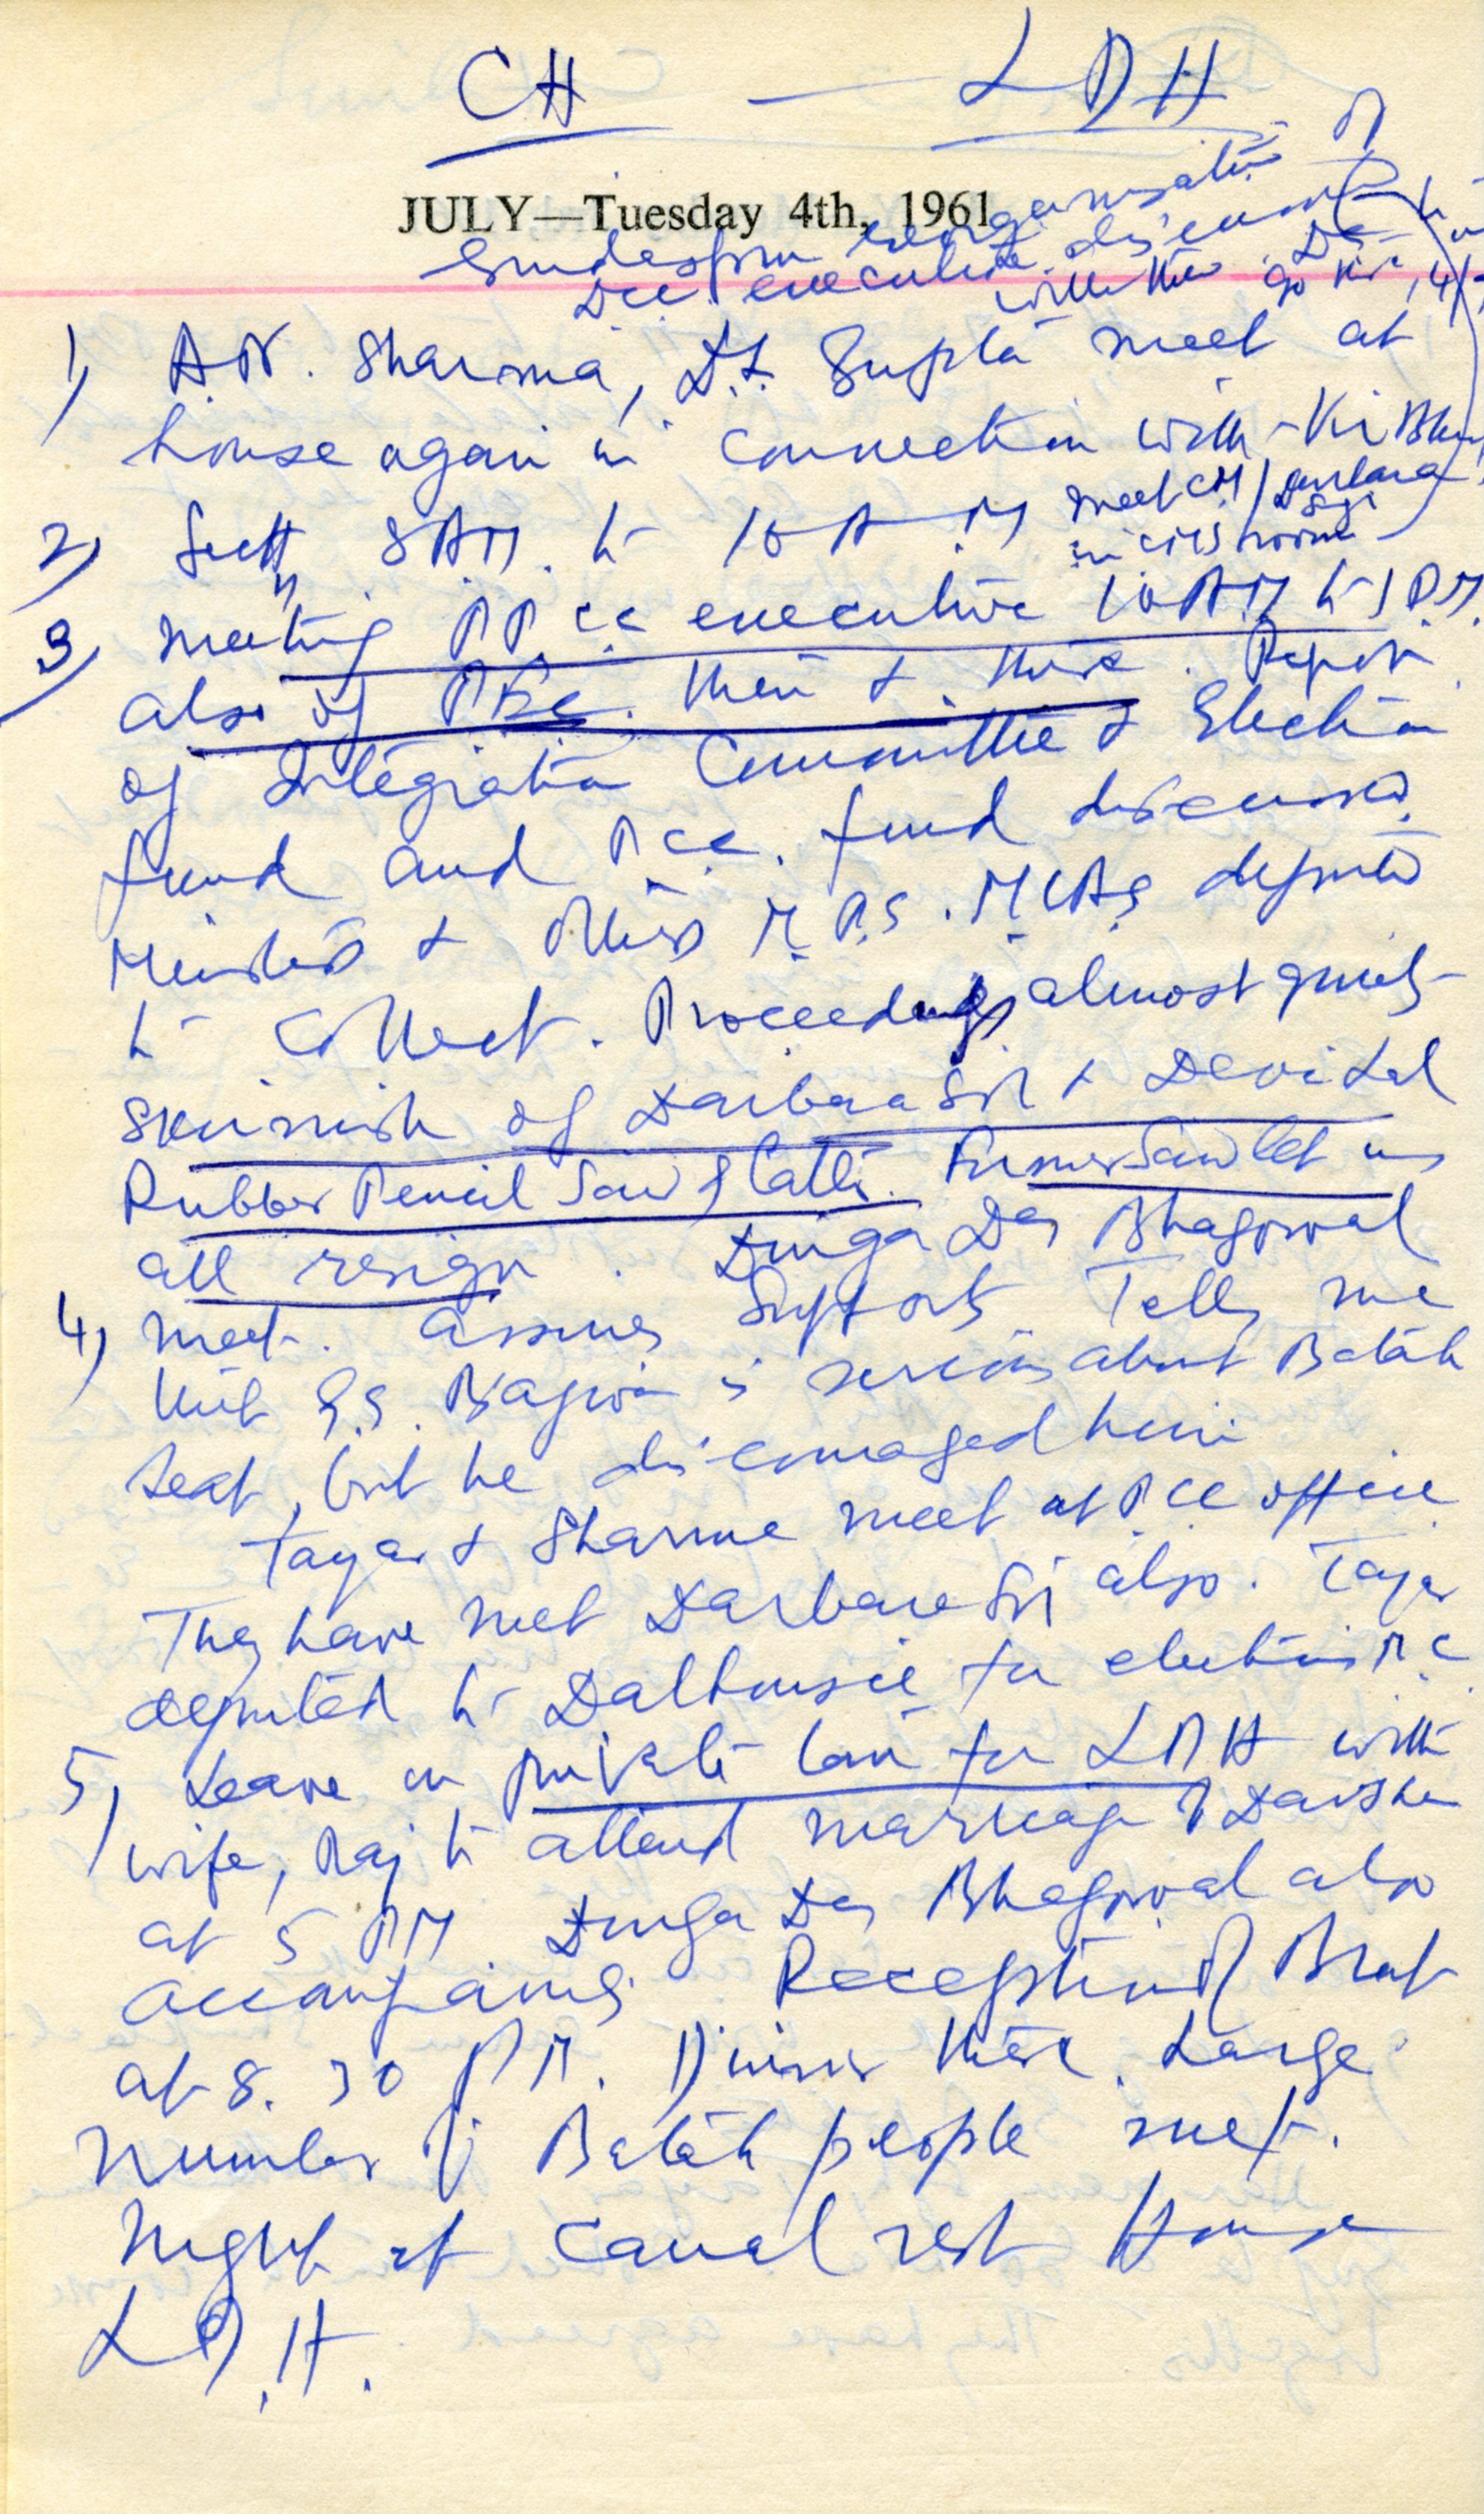 CH — LDH
JULY—Tuesday 4th, 1961
Gurdaspur reorganisation of
Dcc executive discussed
with them. Go
1) A.N. Sharma, D.L. Gupta meet at
house again in connection with
2) Sectt 8 AM. to 10 A.M meet CM / Darbara
Sgi in CM's room
3) Meeting PPcc executive 10 AM to 1 P.M.
also of PEC. then & there. Report
of Integration Committee & Election
fund and Pcc. fund discussed.
Ministers & others M.P.S. MLAS deputed
to collect. Proceedings almost quiet
skirmish of Darbara Sgh & Devi Lal
Rubber Pencil Saw & Catli. Former Saw let us
all resign.
4) Durga Das Bhagowal
meet. Assures Support. Tells me
that G.S. Bajwa is serious about Batala
seat, but he discouraged him
Tayar & Sharma meet at P.CC office
They have met Darbara Sgi also. Tayar
deputed to Dalhousie for election M.C
5) Leave in private car for LDH with
wife, Raj to attend marriage of Darshan
at 5 PM. Durga Das Bhagowal also
accompanies. Reception of Brat
at 8.30 P.M. Dinner there. Large
Number of Batala people met.
Night at Canal rest House
L.D.H.